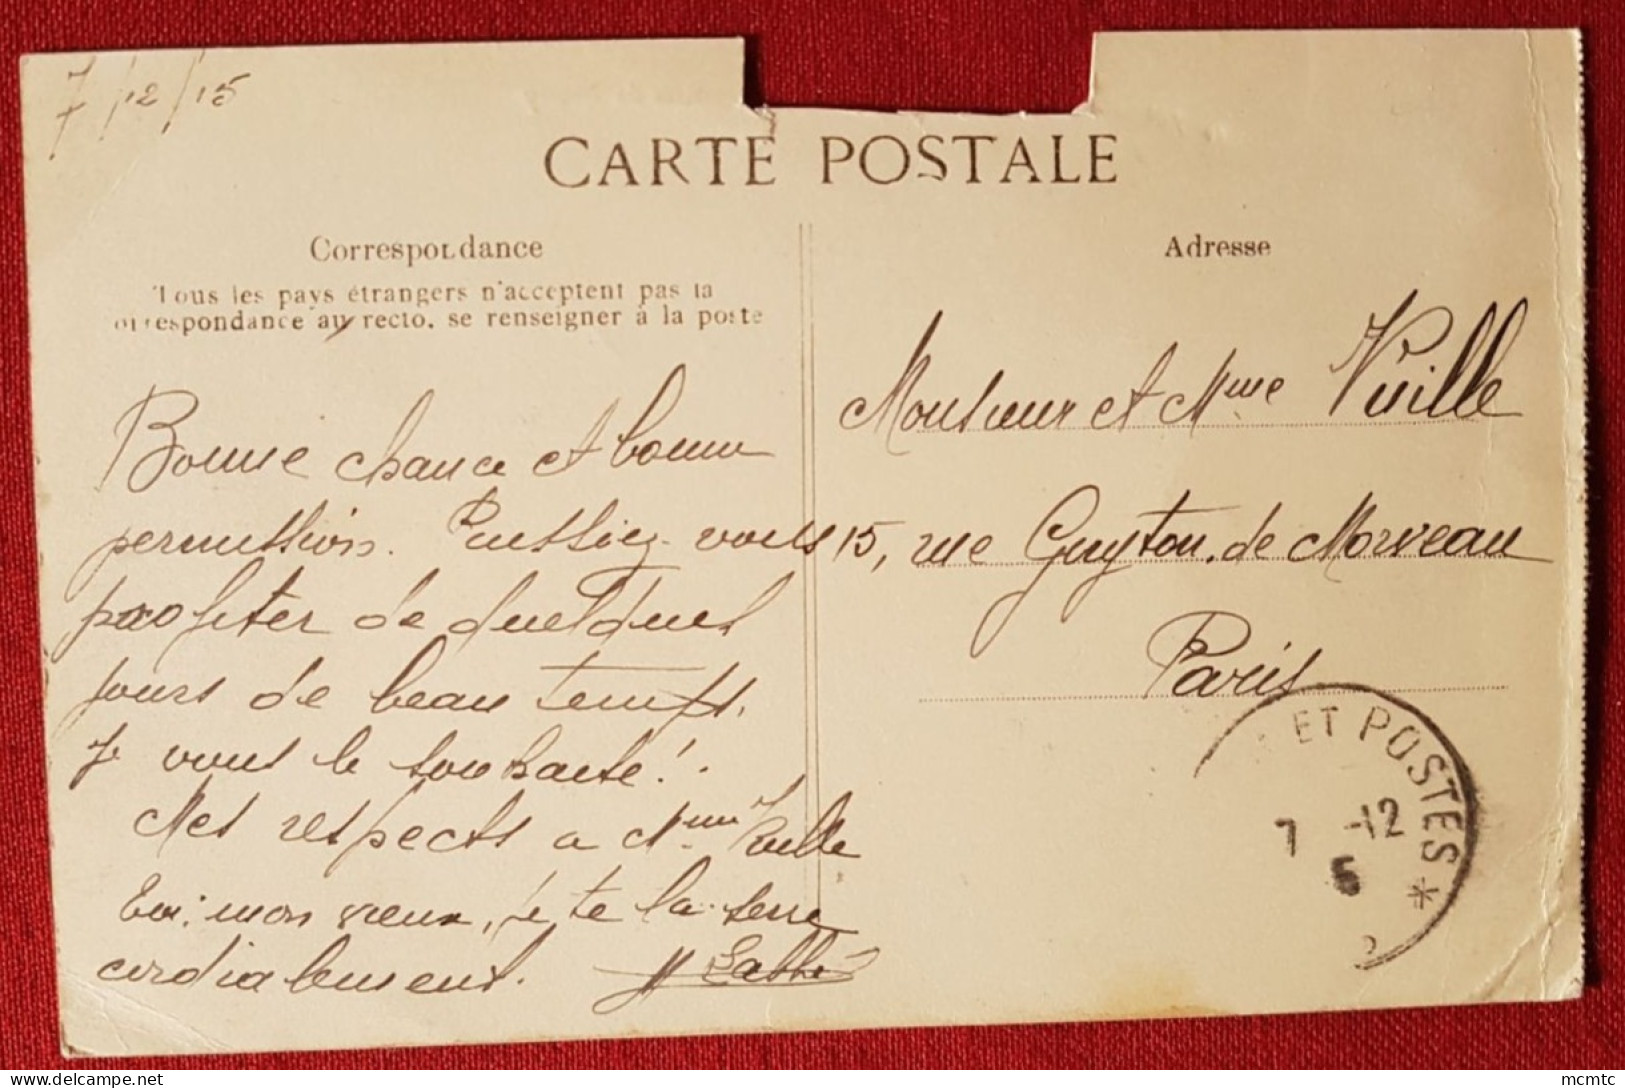 7/12/15
CARTE POSTALE
Correspondance
Tous les pays étrangers n'acceptent pas la
correspondance au recto, se renseigner à la poste
Adresse
Bonne chance et bonne
permission. Puissiez-vous
profiter de quelques
jours de beau temps.
Je vous le souhaite!
Mes respects à Mme Vuille
Toi, mon vieux, je te la serre
cordialement.
Monsieur et Mme Vuille
15, rue Guyton. de Morveau
Paris
ET POSTES *
7 -12
5
mcmtc